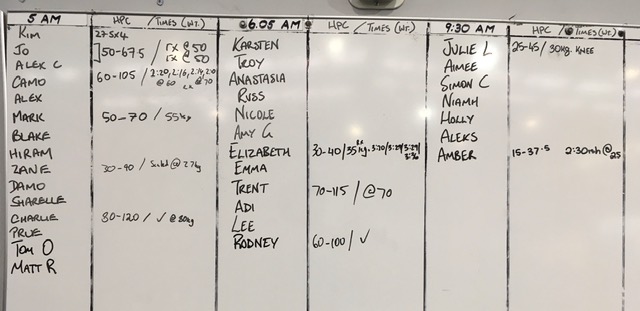 5 AM HPC / TIMES (WT.)
KIM 27.5x4
JO 50-67.5 / rx @ 50
ALEX C rx @ 50
CAMO 60-105 / 2:20, 2:16, 2:14, 2:0
@ 60 @ 70
ALEX
MARK 50-70 / 55kg
BLAKE
HIRAM
ZANE 30-90 / @ 27kg
DAMO
SHARELLE
CHARLIE 80-120 / ✓ @ 80kg
PRUE
TOM O
MATT R
6.05 AM HPC / TIMES (WT.)
KARSTEN
TROY
ANASTASIA
RUSS
NICOLE
AMY G
ELIZABETH 30-40 / 35kg.
EMMA
TRENT 70-115 / @ 70
ADI
LEE
RODNEY 60-100 / ✓
9:30 AM HPC / TIMES (WT.)
JULIE L 25-45 / 30kg. KNEE
AIMEE
SIMON C
NIAMH
HOLLY
ALEKS
AMBER 15-37.5 2:30 @ 25